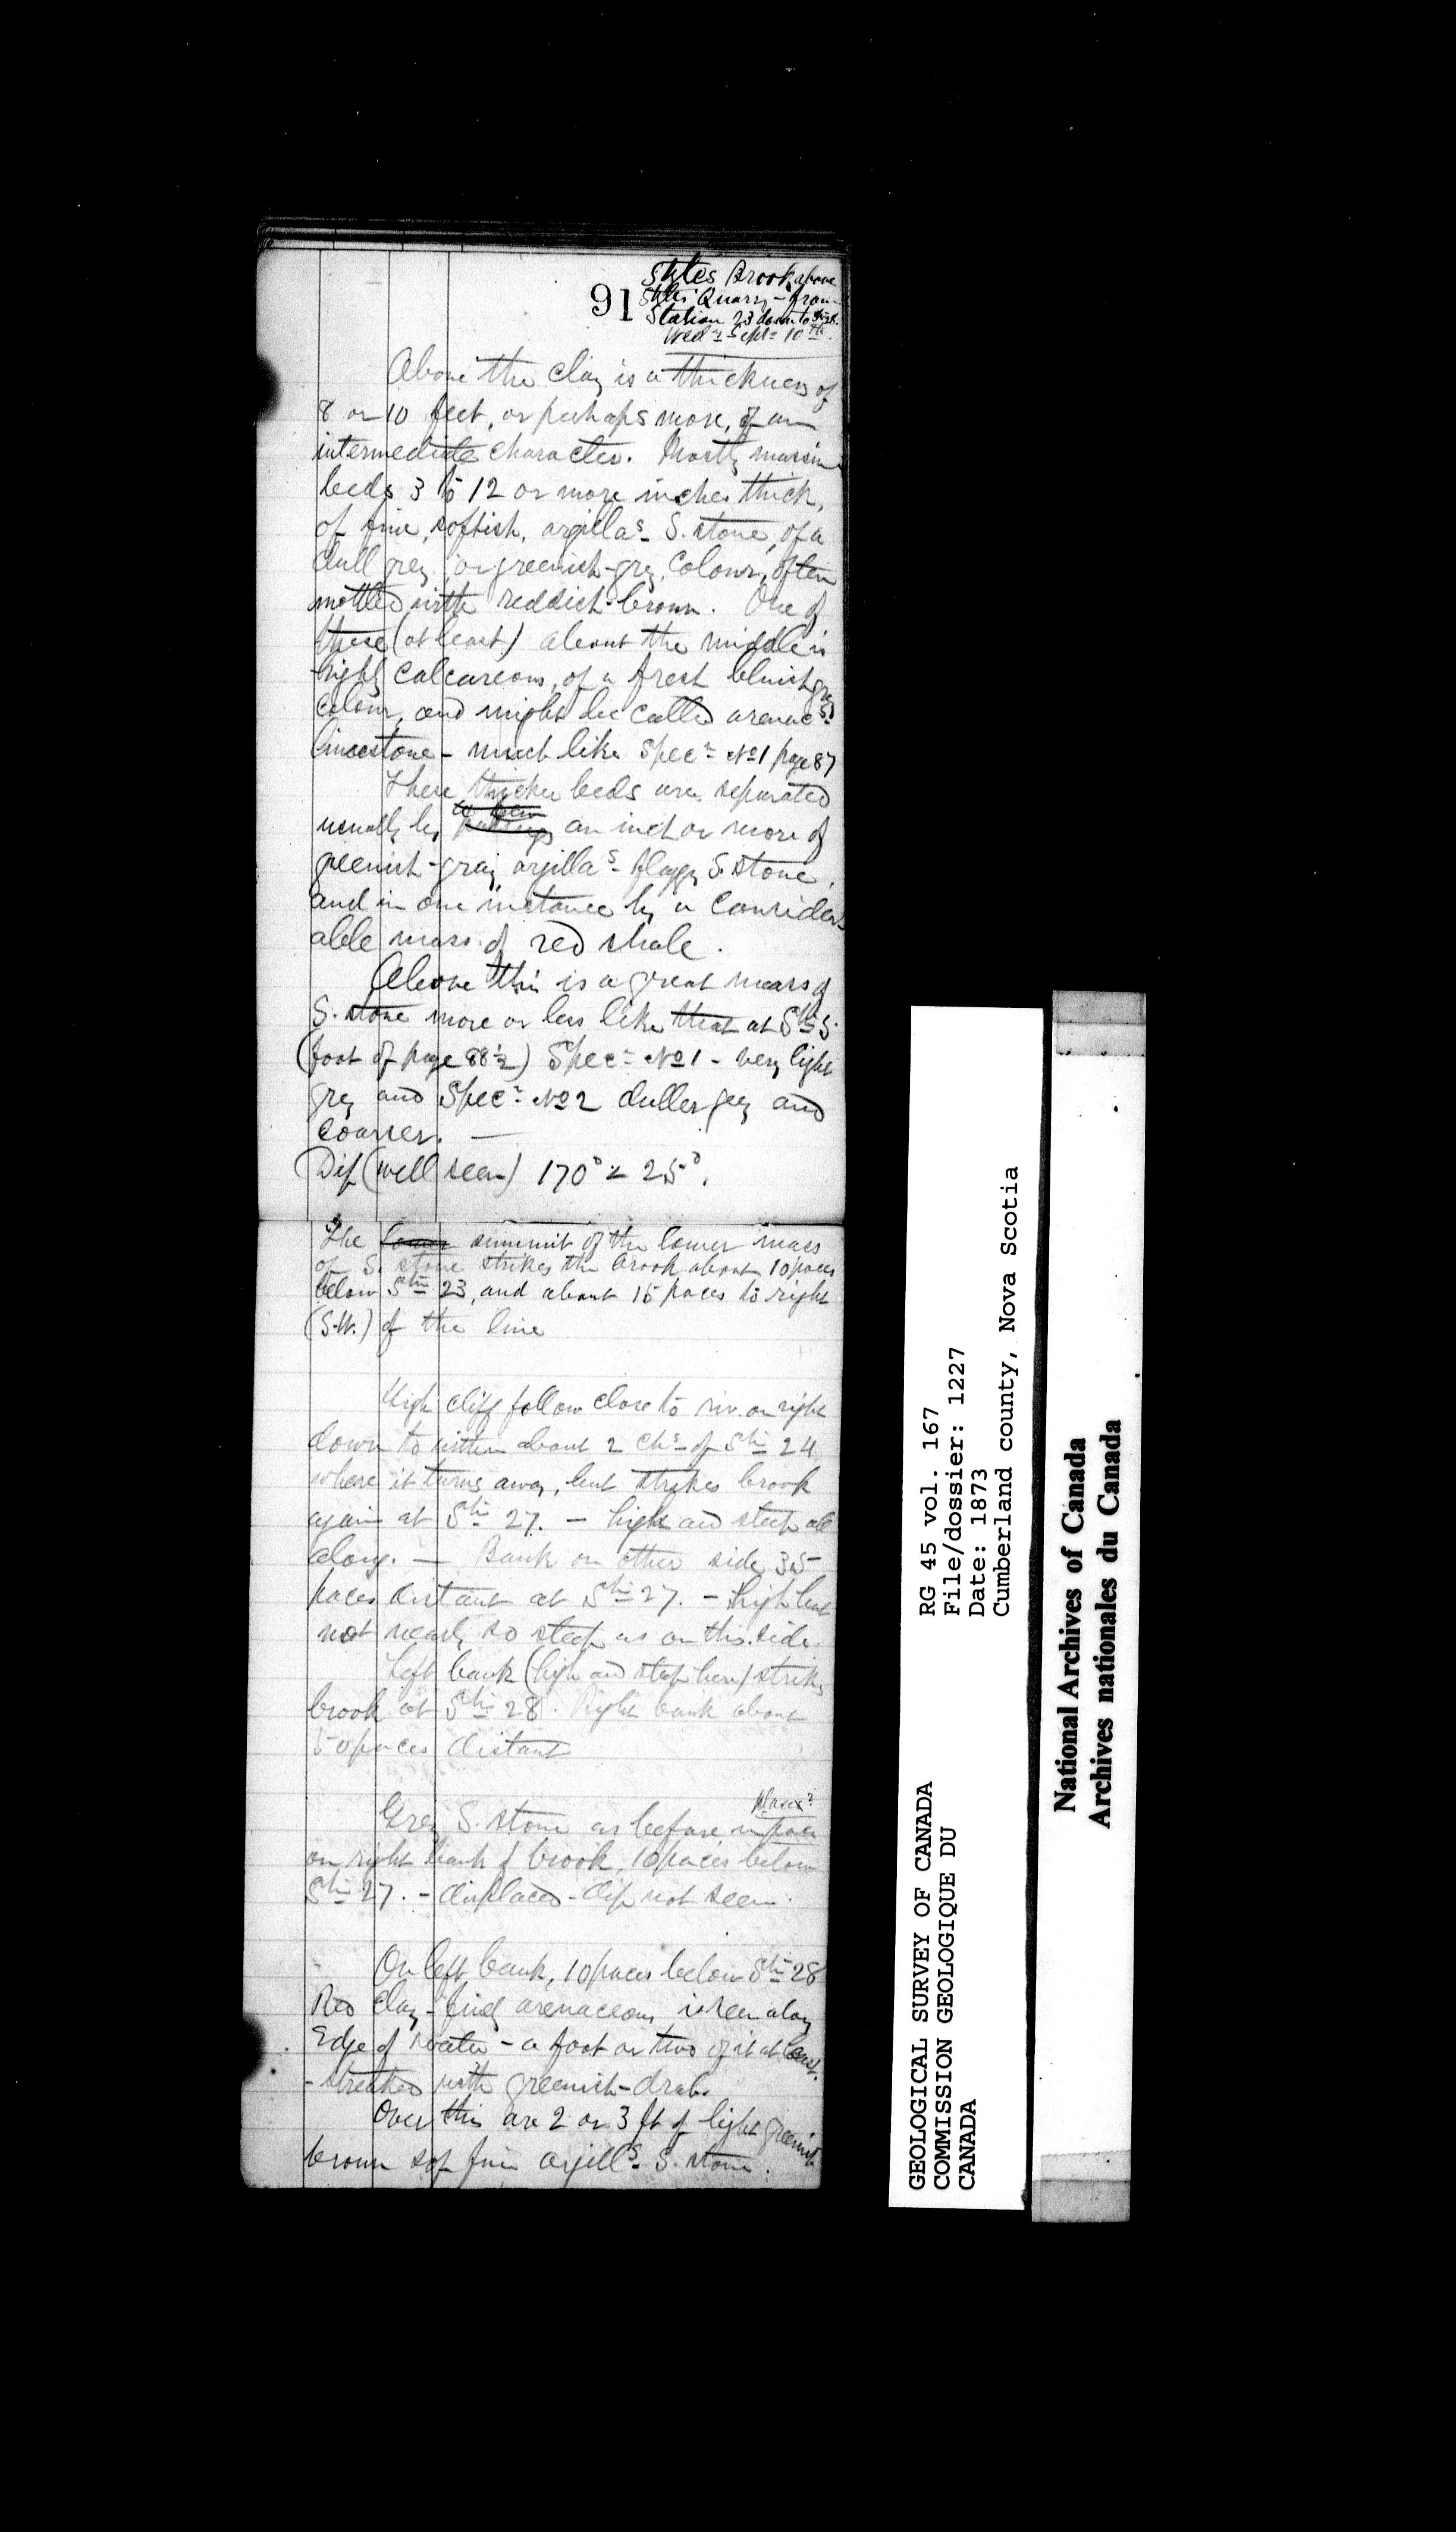 91
Styles Brook above
Styles' Quarry - from
Station 23 down to
Wed.y Sept. 10th.
Above the clay is a thickness of
8 or 10 feet, or perhaps more, of an
intermediate character. Mostly massive
beds 3 to 12 or more inches thick,
of fine, softish, argillas. S. stone, of a
dull grey, or greenish-grey, colour, often
mottled with reddish-brown. One of
these (at least) about the middle is
highly calcareous, of a fresh bluish grey
colour, and might be called arenacs.
limestone - much like Specn. No 1 page 87
These thicker beds are separated
usually by an inch or more of
greenish-gray argillas. flaggy S. stone,
and in one instance by a consider-
able mass of red shale.
Above this is a great mass of
S. stone more or less like that at Stn 5.
(foot of page 88½) Specn. No 1 - very light
grey and Specn. No 2 duller grey and
coarser. —
Dip (well seen) 170° ∠ 25°.
The lower summit of the lower mass
of S. stone strikes the brook about 10 paces
below Stn 23, and about 15 paces to right
(S.W.) of the line
High cliff follow close to riv. on right
down to within about 2 chs. of Stn 24
where it turns away, but strikes brook
again at Stn 27. - high and steep all
along. — Bank on other side 35
paces distant at Stn 27. - high but
not nearly so steep as on this side.
Left bank (high and steep here) strikes
brook at Stn 28. Right bank about
50 paces distant
Grey S. stone as before in place
on right bank of brook, 10 paces below
Stn 27. - displaced - dip not seen.
On left bank, 10 paces below Stn 28
Red clay - finely arenaceous is seen along
Edge of water - a foot or two of it at least.
- streaked with greenish-drab.
Over this are 2 or 3 ft of light greenish
brown soft fine argills. S. stone.
GEOLOGICAL SURVEY OF CANADA
COMMISSION GEOLOGIQUE DU
CANADA
RG 45 vol. 167
File/dossier: 1227
Date: 1873
Cumberland county, Nova Scotia
National Archives of Canada
Archives nationales du Canada